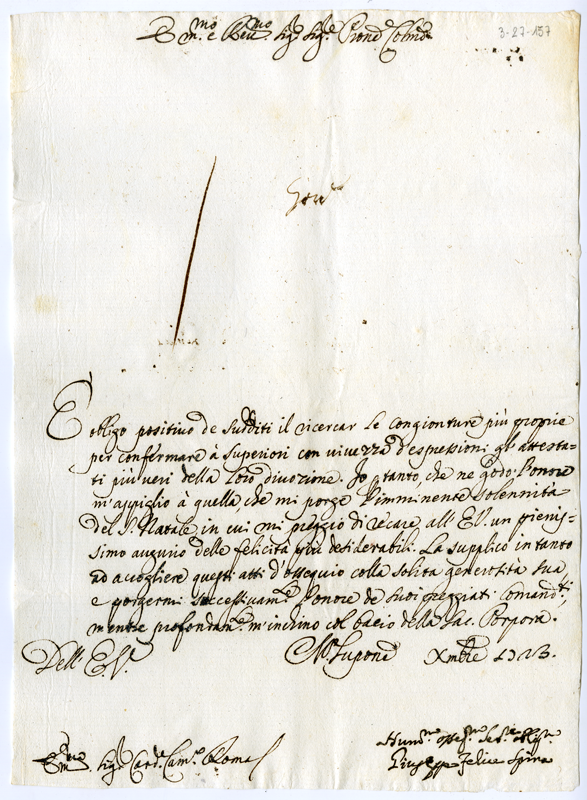 Em.mo e Rev.mo Sig.r Sig.r Pron.e Col.mo
3-27-157
È obligo positivo de Sudditi il ricercar le congionture più proprie
per confermare à Superiori con vivezza d'espressioni gl'attesta=
ti più veri della loro divozione. Io pertanto, che ne godo l'onore
m'appiglio à quella che mi porge l'imminente solennità
del S. Natale, in cui mi preggio di recare all'E.V. un pienis=
simo augurio delle felicità più desiderabili. La supplico intanto
ad accogliere questi atti d'ossequio colla solita generosità sua,
e porgermi successivam.te l'onore de suoi preggiati comandi,
mentre profondam.te m'inchino col bacio della Sac. Porpora.
Dell'E.V. Xmbre 1723.
Em.mo Sig.r Card.le Cam.o Roma
Giuseppe Felice Spina